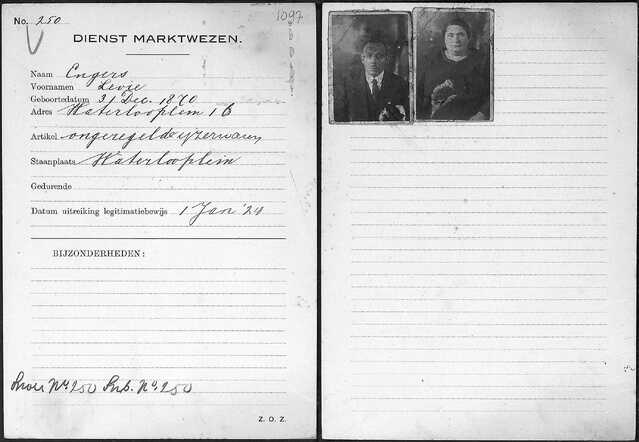 No. 250
1097
DIENST MARKTWEZEN.
Naam Engers
Voornamen Levie
Geboortedatum 31 Dec. 1870
Adres Waterlooplein 16
Artikel ongeregelde ijzerwaren
Staanplaats Waterlooplein
Gedurende
Datum uitreiking legitimatiebewijs 1 Jan '24
BIJZONDERHEDEN:
No. 250 No. 250
Z. O. Z.